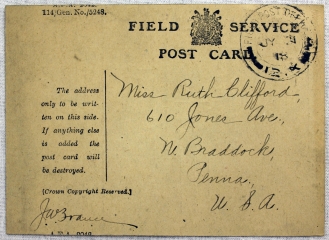 114/Gen. No./5248.
FIELD SERVICE
POST CARD
The address
only to be writ-
ten on this side.
If anything else
is added the
post card will
be destroyed.
[Crown Copyright Reserved.]
Miss Ruth Clifford,
610 Jones Ave.,
N. Braddock,
Penna.,
U.S.A.